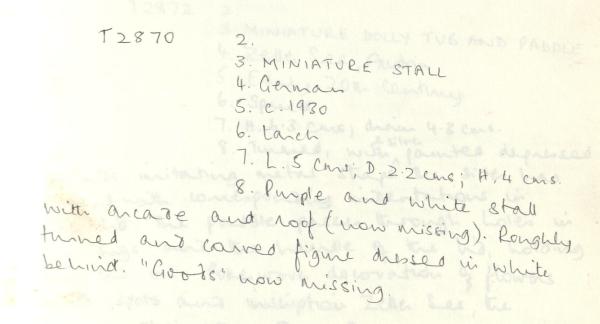 T2870 2.
3. MINIATURE STALL
4. German
5. c. 1930
6. Larch
7. L. 5 cms; D. 2.2 cms; H. 4 cms.
8. Purple and white stall
with arcade and roof (now missing). Roughly
turned and carved figure dressed in white
behind. "Goods" now missing.